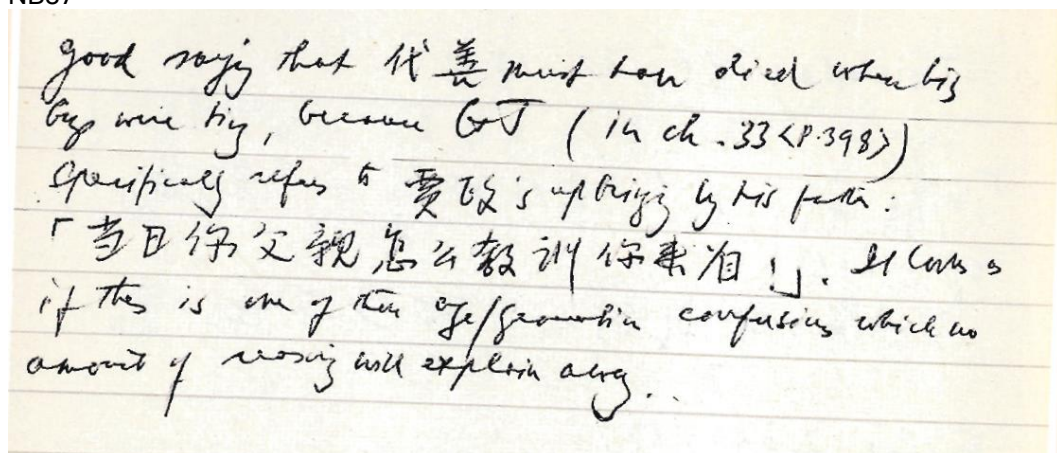 good saying that 代善 must have died when his
boys were tiny, because GJ (in ch. 33 <P.398>)
specifically refers to 贾政's upbringing by his father:
「当日你父親怎么教訓你来着!」. It looks as
if this is one of those age/generation confusions which no
amount of reasoning will explain away..